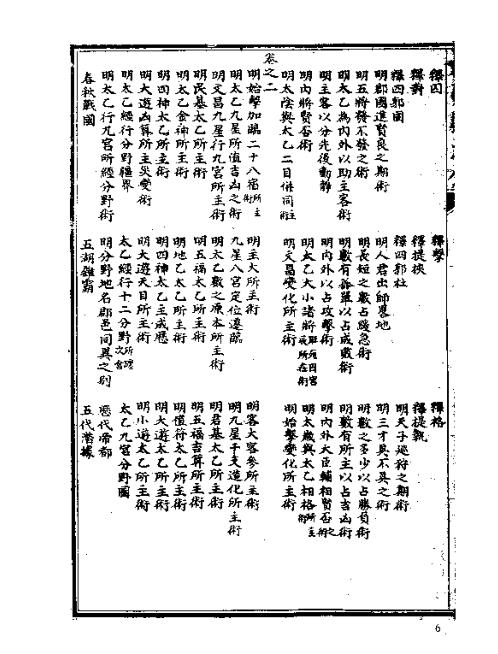 釋囚　釋擊　釋格
釋對　釋提挾　釋提執
釋四郭固　釋四郭杜　明天子巡狩之期術
明郡國進賢良之期術　明人君出師畧地　明三才具不具之術
明五將發不發之術　明長短之數占緩急術　明數之多少以占勝負術
明太乙為內外以助主客術　明數有以占成敗術　明數有所主以占吉凶術
明主客以分先後動靜　明內外以占攻擊術　明內外大臣輔相賢否之術
明內將賢否術　明太乙大小諸將　明太歲與太乙相格所主術
明太陰與太乙二目併同所主術　明文昌變化所主術　明始擊變化所主術
卷之二
明始擊加臨二十八宿所主術　明主大所主術　明客大客參所主術
明太乙九星所值吉凶之術　九星八宮定位遷臨　明九星干支造化所主術
明文昌九星行九宮所主術　明太乙數之原本所主術　明君基太乙所主術
明民基太乙所主術　明五福太乙所主術　明五福吉算所主術
明太乙食神所主術　明地乙太乙所主術　明值符太乙所主術
明四神太乙所主術　明四神太乙主應　明大遊太乙所主術
明大遊凶算所主災變術　明大遊天目所主術　明小遊太乙所主術
明太乙經行分野疆界　太乙經行十二分野所次舍　太乙九宮分野圖
明太乙行九宮所經分野術　明分野地名郡邑同異之別　歷代帝都
春秋戰國　五湖雜霸　五代僭據
6